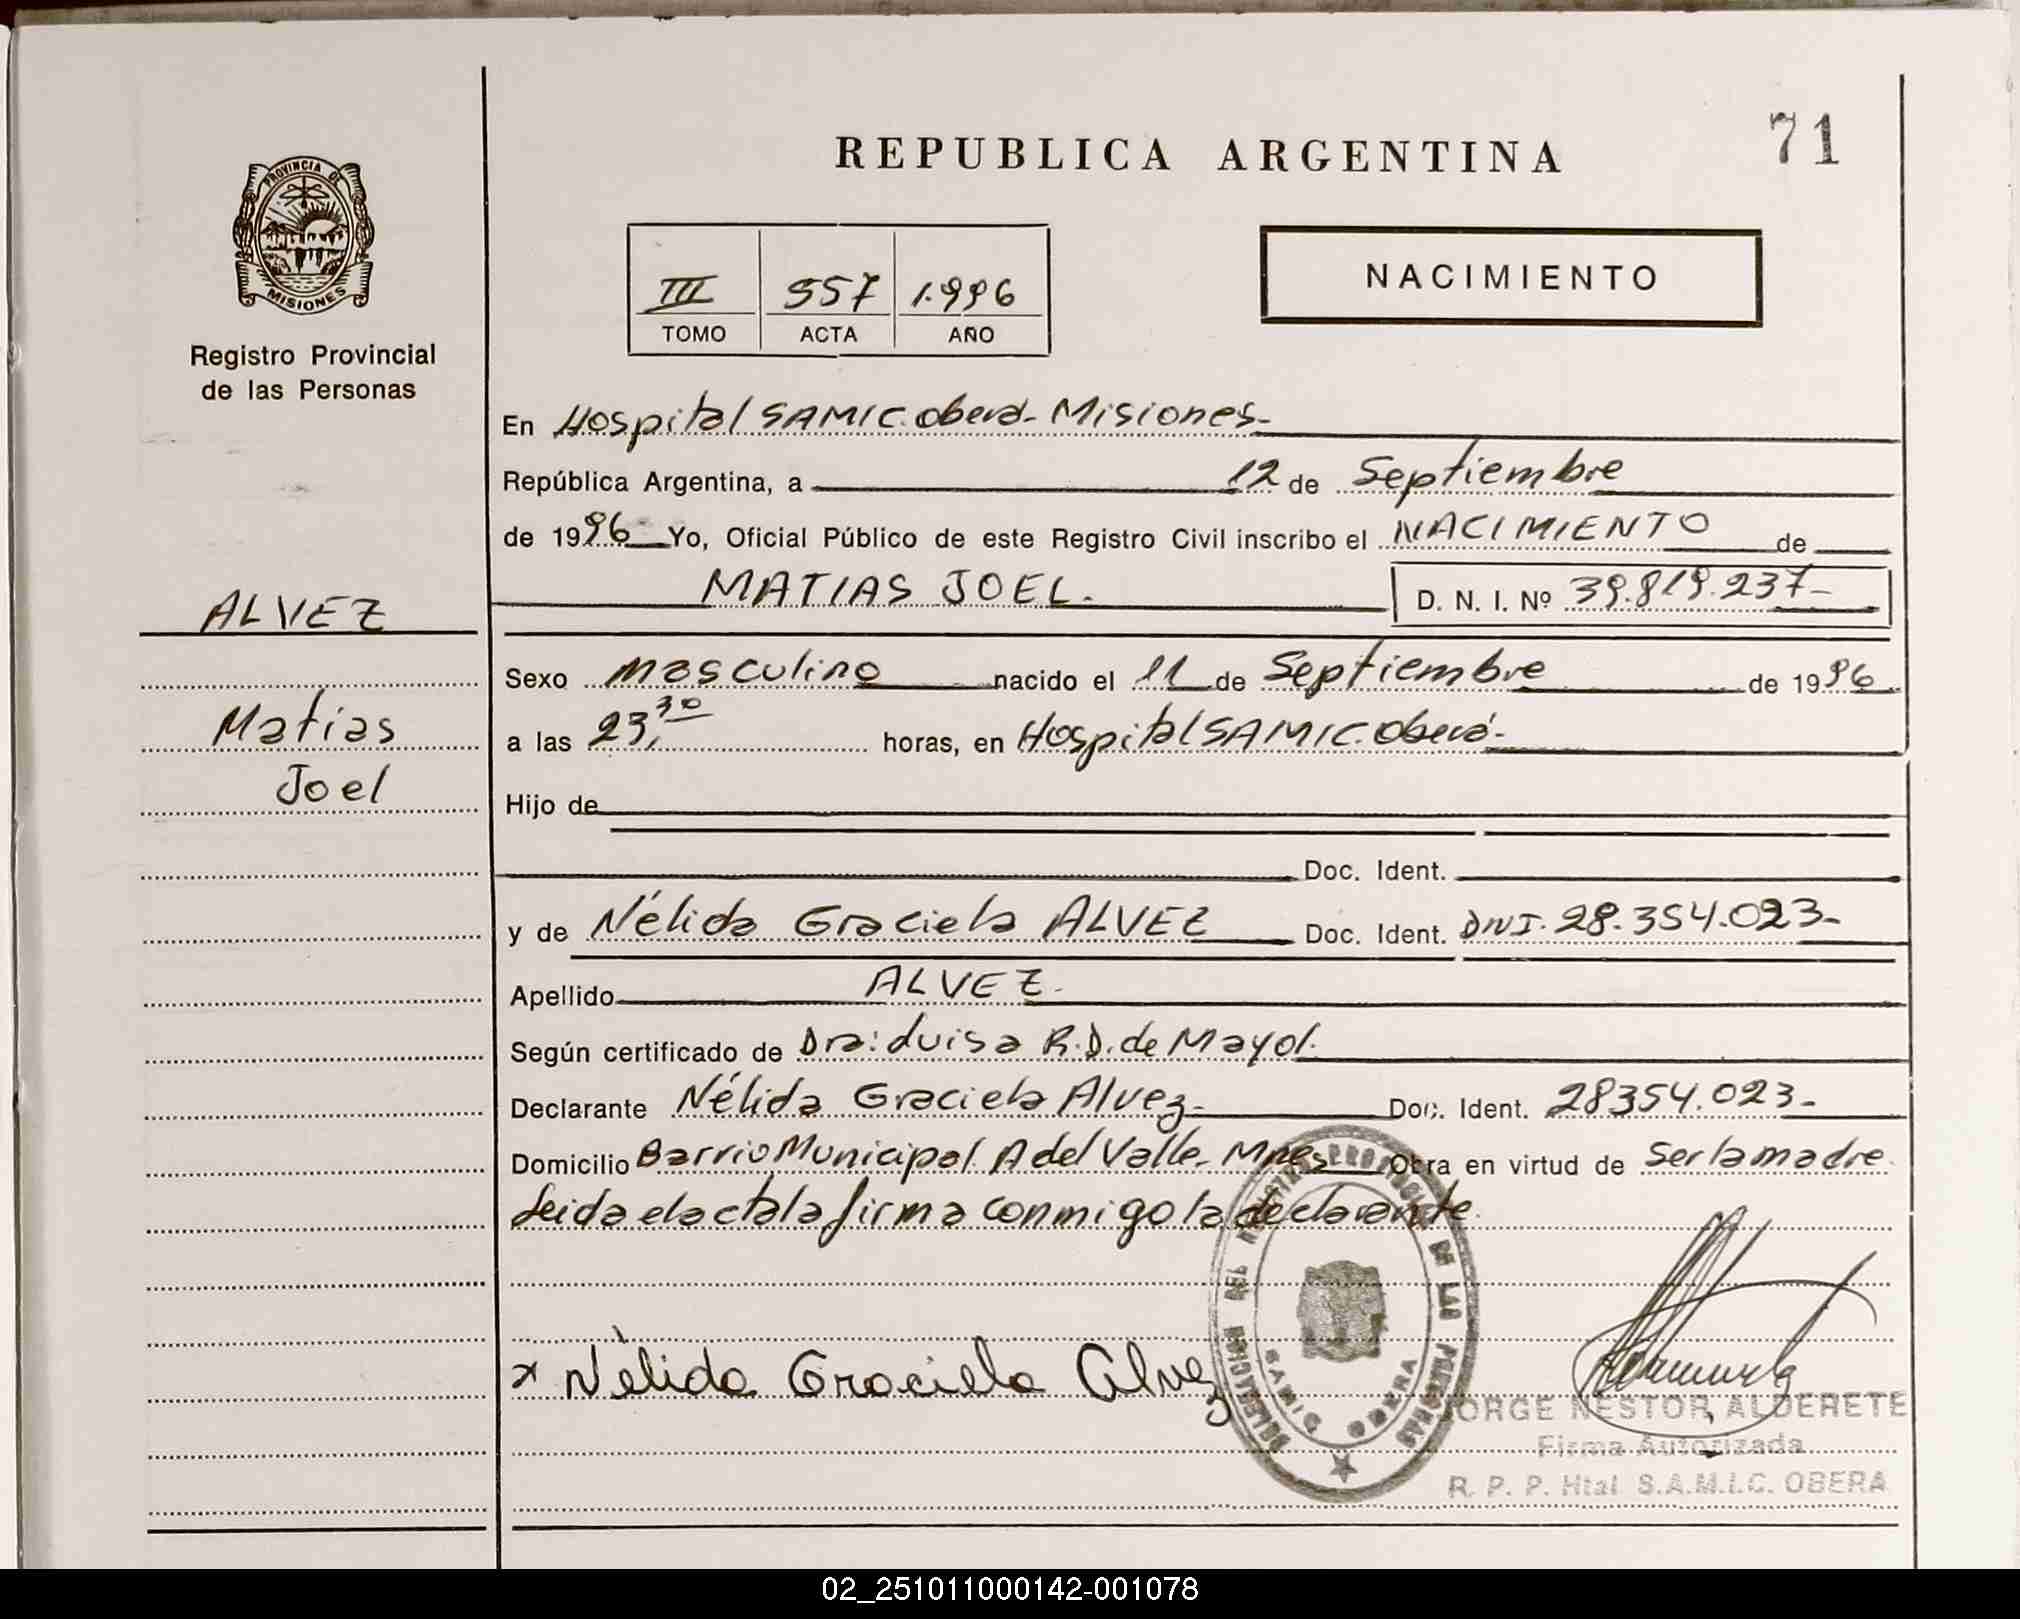 REPUBLICA ARGENTINA
71
PROVINCIA DE
MISIONES
Registro Provincial
de las Personas
III 557 1.996
TOMO ACTA AÑO
NACIMIENTO
En Hospital SAMIC. Oberá- Misiones-
República Argentina, a 12 de Septiembre
de 1996 Yo, Oficial Público de este Registro Civil inscribo el NACIMIENTO de
MATIAS JOEL. D. N. I. Nº 39.819.237-
ALVEZ
Matias
Joel
Sexo masculino nacido el 11 de Septiembre de 1996
a las 23,30 horas, en Hospital SAMIC. Oberá-
Hijo de
Doc. Ident.
y de Nélida Graciela ALVEZ Doc. Ident. DNI. 28.354.023-
Apellido ALVEZ.
Según certificado de Dra: Luisa R.D. de Mayol.
Declarante Nélida Graciela Alvez- Doc. Ident. 28354.023-
Domicilio Barrio Municipal A del Valle- Mnes Obra en virtud de ser la madre.
Leida el acta la firma conmigo la declarante.
x Nélida Graciela Alvez
DELEGACION DEL REGISTRO PROVINCIAL DE LAS PERSONAS
SAMIC OBERA
JORGE NESTOR ALDERETE
Firma Autorizada
R. P. P. Htal S.A.M.I.C. OBERA
02_251011000142-001078